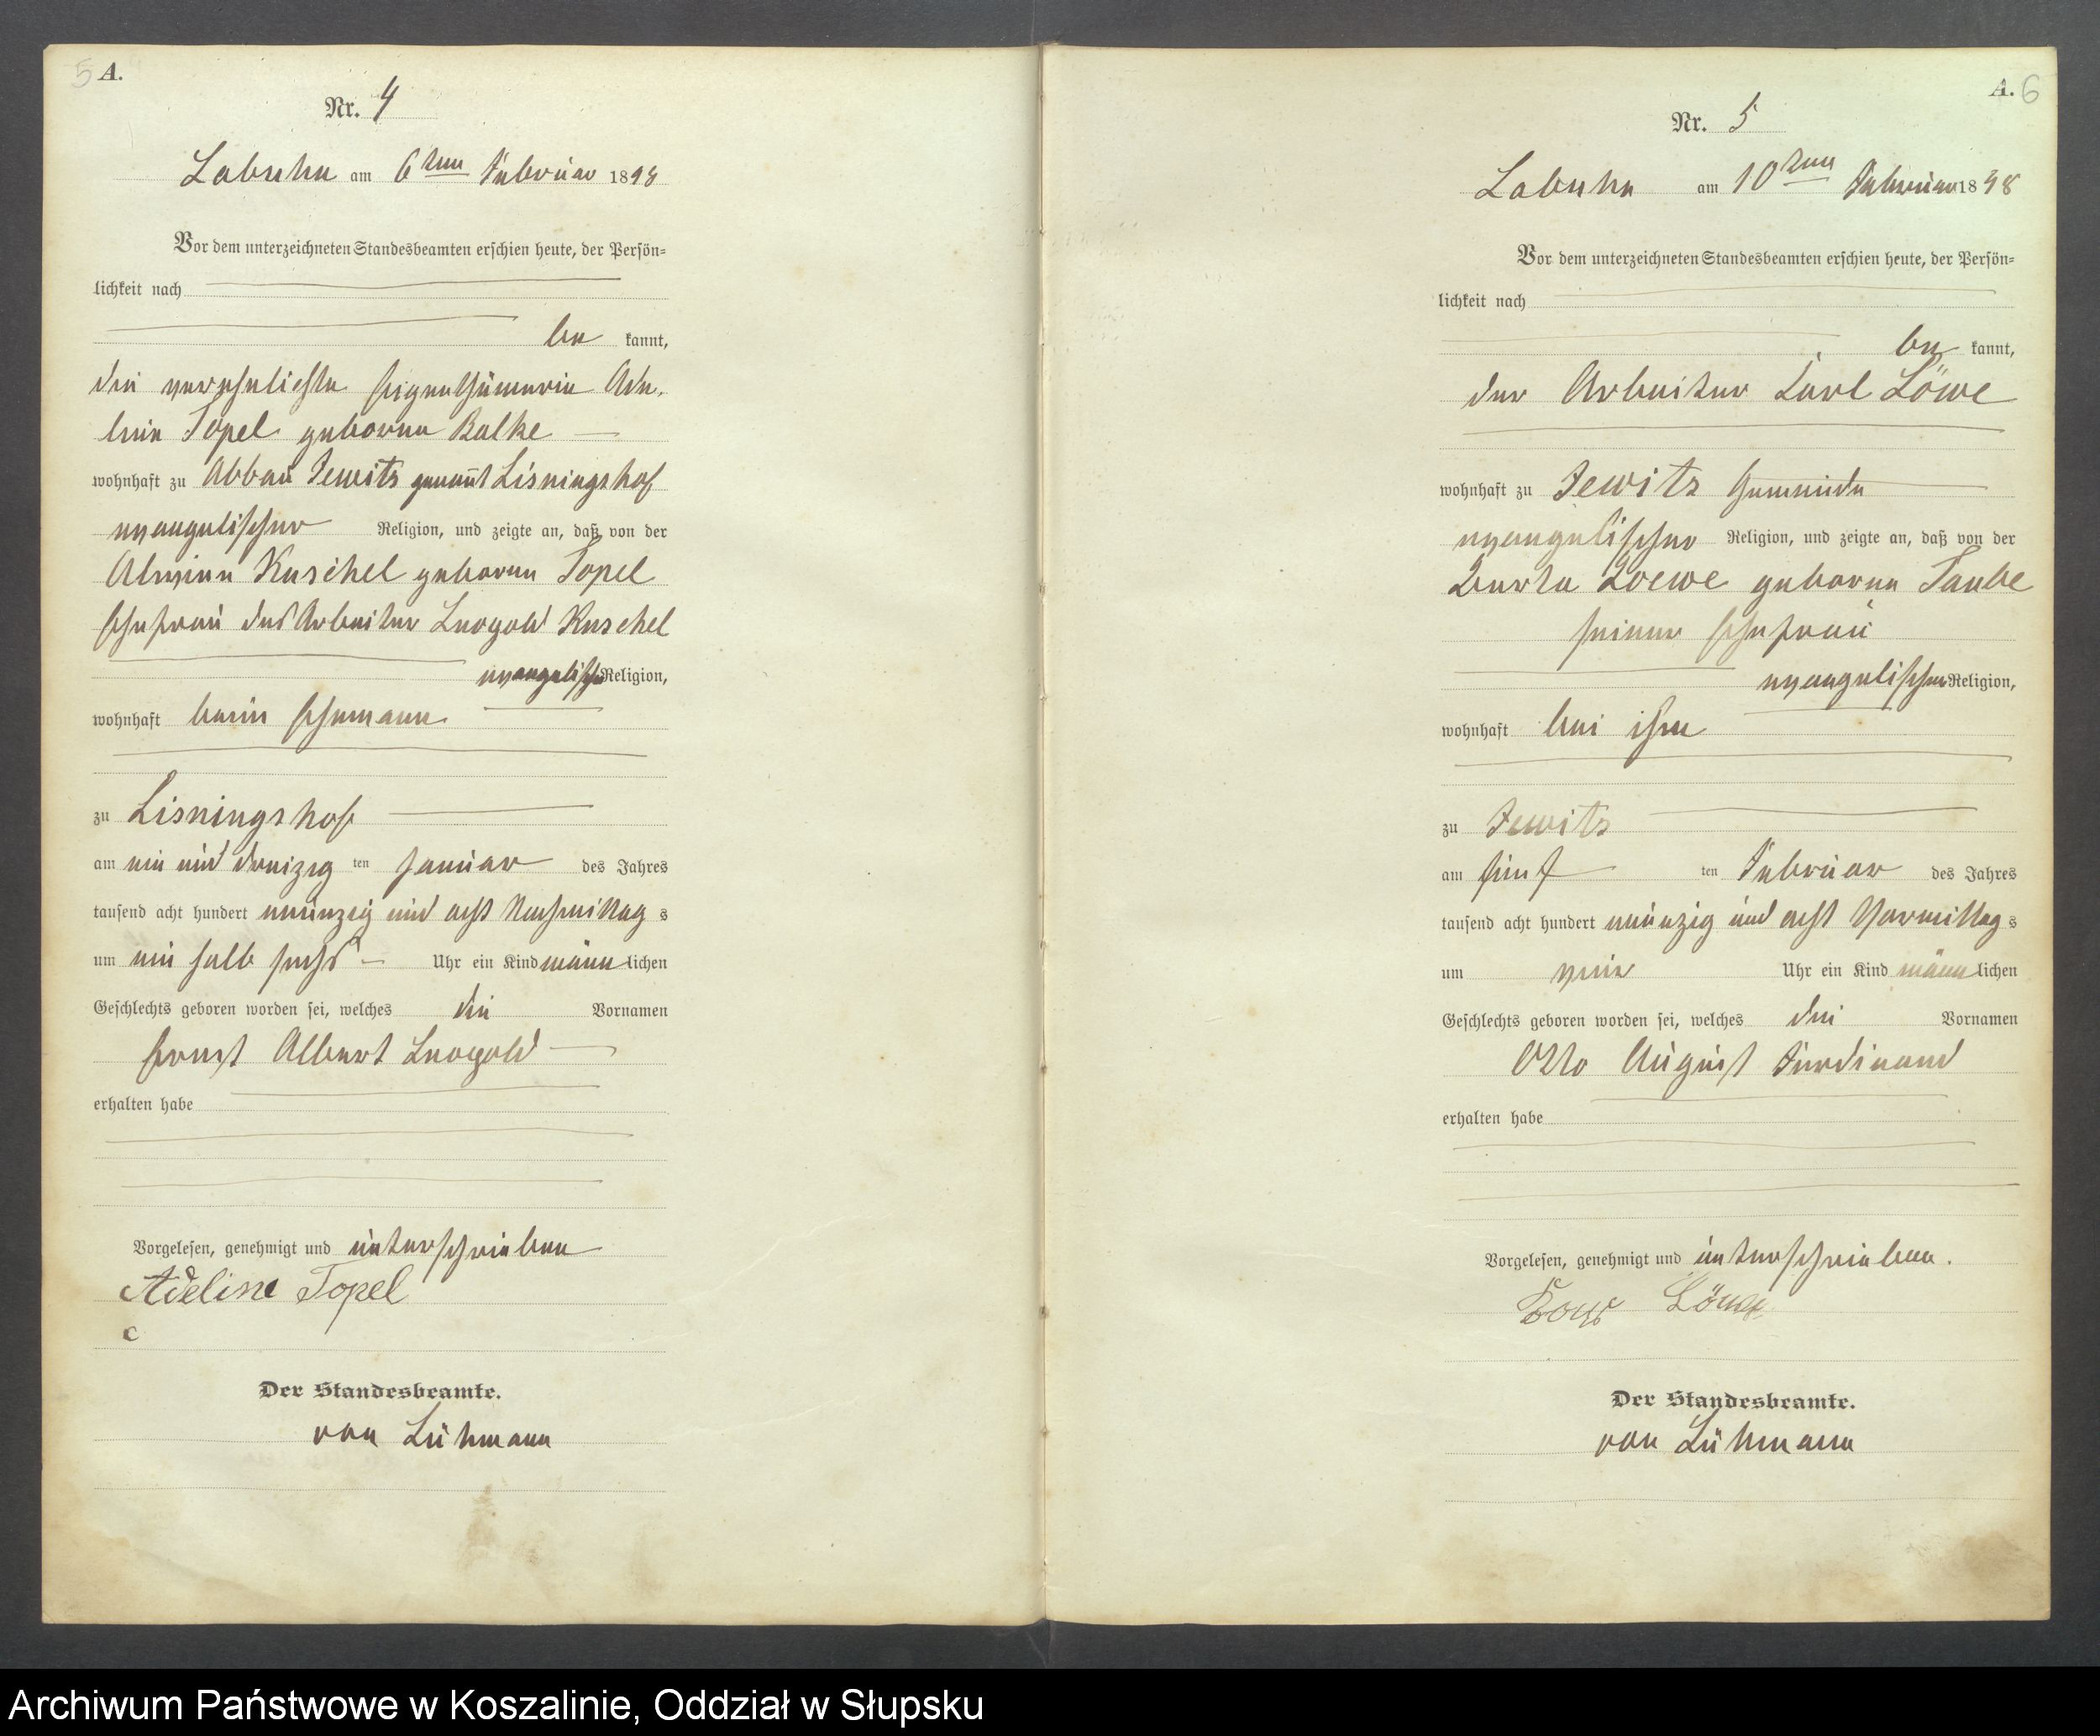 5 A.
Nr. 4
Labuhn am 6ten Februar 1898
Vor dem unterzeichneten Standesbeamten erschien heute, der Persön-
lichkeit nach
be kannt,
die verehelichte Eigenthümerin Ade-
lein Topel geborene Balke
wohnhaft zu Abbau Jewitz genannt Lisningshof
evangelischer Religion, und zeigte an, daß von der
Alwine Kuschel geborene Topel
Ehefrau des Arbeiter Leopold Kuschel
evangelischer Religion,
wohnhaft beim Ehemann
zu Lisningshof
am ein und dreizig ten Januar des Jahres
tausend acht hundert neunzig und acht Nachmittag s
um ein halb sechs Uhr ein Kind männ lichen
Geschlechts geboren worden sei, welches die Vornamen
Ernst Albert Leopold
erhalten habe
Vorgelesen, genehmigt und unterschrieben
Adeline Topel
Der Standesbeamte.
von Lühmann
A. 6
Nr. 5
Labuhn am 10ten Februar 1898
Vor dem unterzeichneten Standesbeamten erschien heute, der Persön-
lichkeit nach
be kannt,
der Arbeiter Carl Löwe
wohnhaft zu Jewitz Gemeinde
evangelischer Religion, und zeigte an, daß von der
Berta Loewe geborene Taube
seiner Ehefrau
evangelischer Religion,
wohnhaft bei ihm
zu Jewitz
am fünf ten Februar des Jahres
tausend acht hundert neunzig und acht Vormittag s
um vier Uhr ein Kind männ lichen
Geschlechts geboren worden sei, welches die Vornamen
Otto August Ferdinand
erhalten habe
Vorgelesen, genehmigt und unterschrieben.
Löwe
Der Standesbeamte.
von Lühmann
Archiwum Państwowe w Koszalinie, Oddział w Słupsku